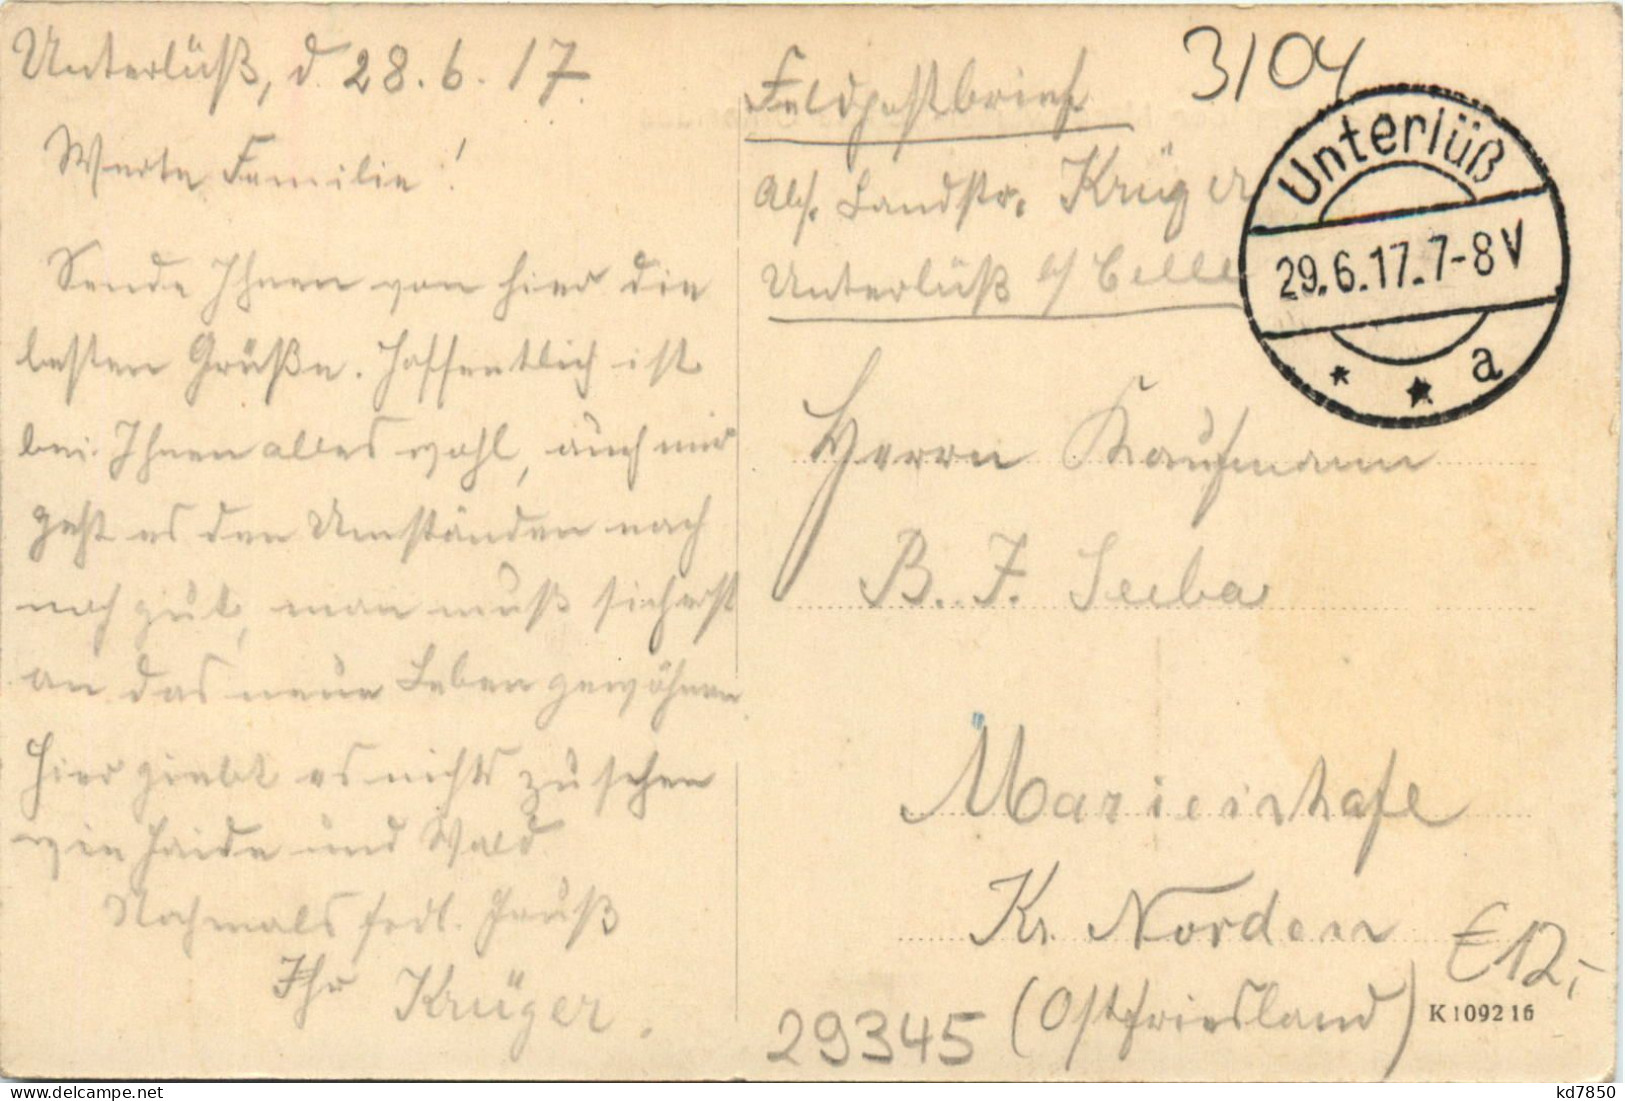 Unterlüß, d. 28.6.17.
Werte Familie!
Sende Ihnen von hier die
besten Grüße. Hoffentlich ist
bei Ihnen alles wohl, auch mir
geht es den Umständen nach
noch gut, man muß sich erst
an das neue Leben gewöhnen
Hier giebt es nichts zu sehen
wie Haide und Wald
Nochmals frdl. Gruß
Ihr Krüger.
Feldpostbrief
Abs. Landstr. Krüger
Unterlüß b/ Celle
3104
Unterlüß
29.6.17.7-8V
* * a
Herrn Kaufmann
B. J. Seeba
Marienhafe
Kr. Norden
(Ostfriesland)
€12,-
29345
K 109216
kd7850